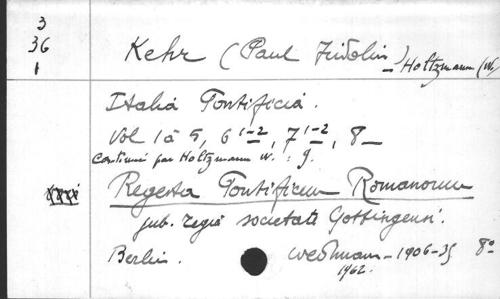 3
36
1
Kehr (Paul Fridolin) – Holtzmann (W.)
Italia Pontificia.
Vol 1 à 5, 6 1-2, 7 1-2, 8 –
Continué par Holtzmann W. : 9.
Regesta Pontificum Romanorum
jub. regiâ societati Gottingensi.
Berlin. Weidmann – 1906-35 8°
1962.